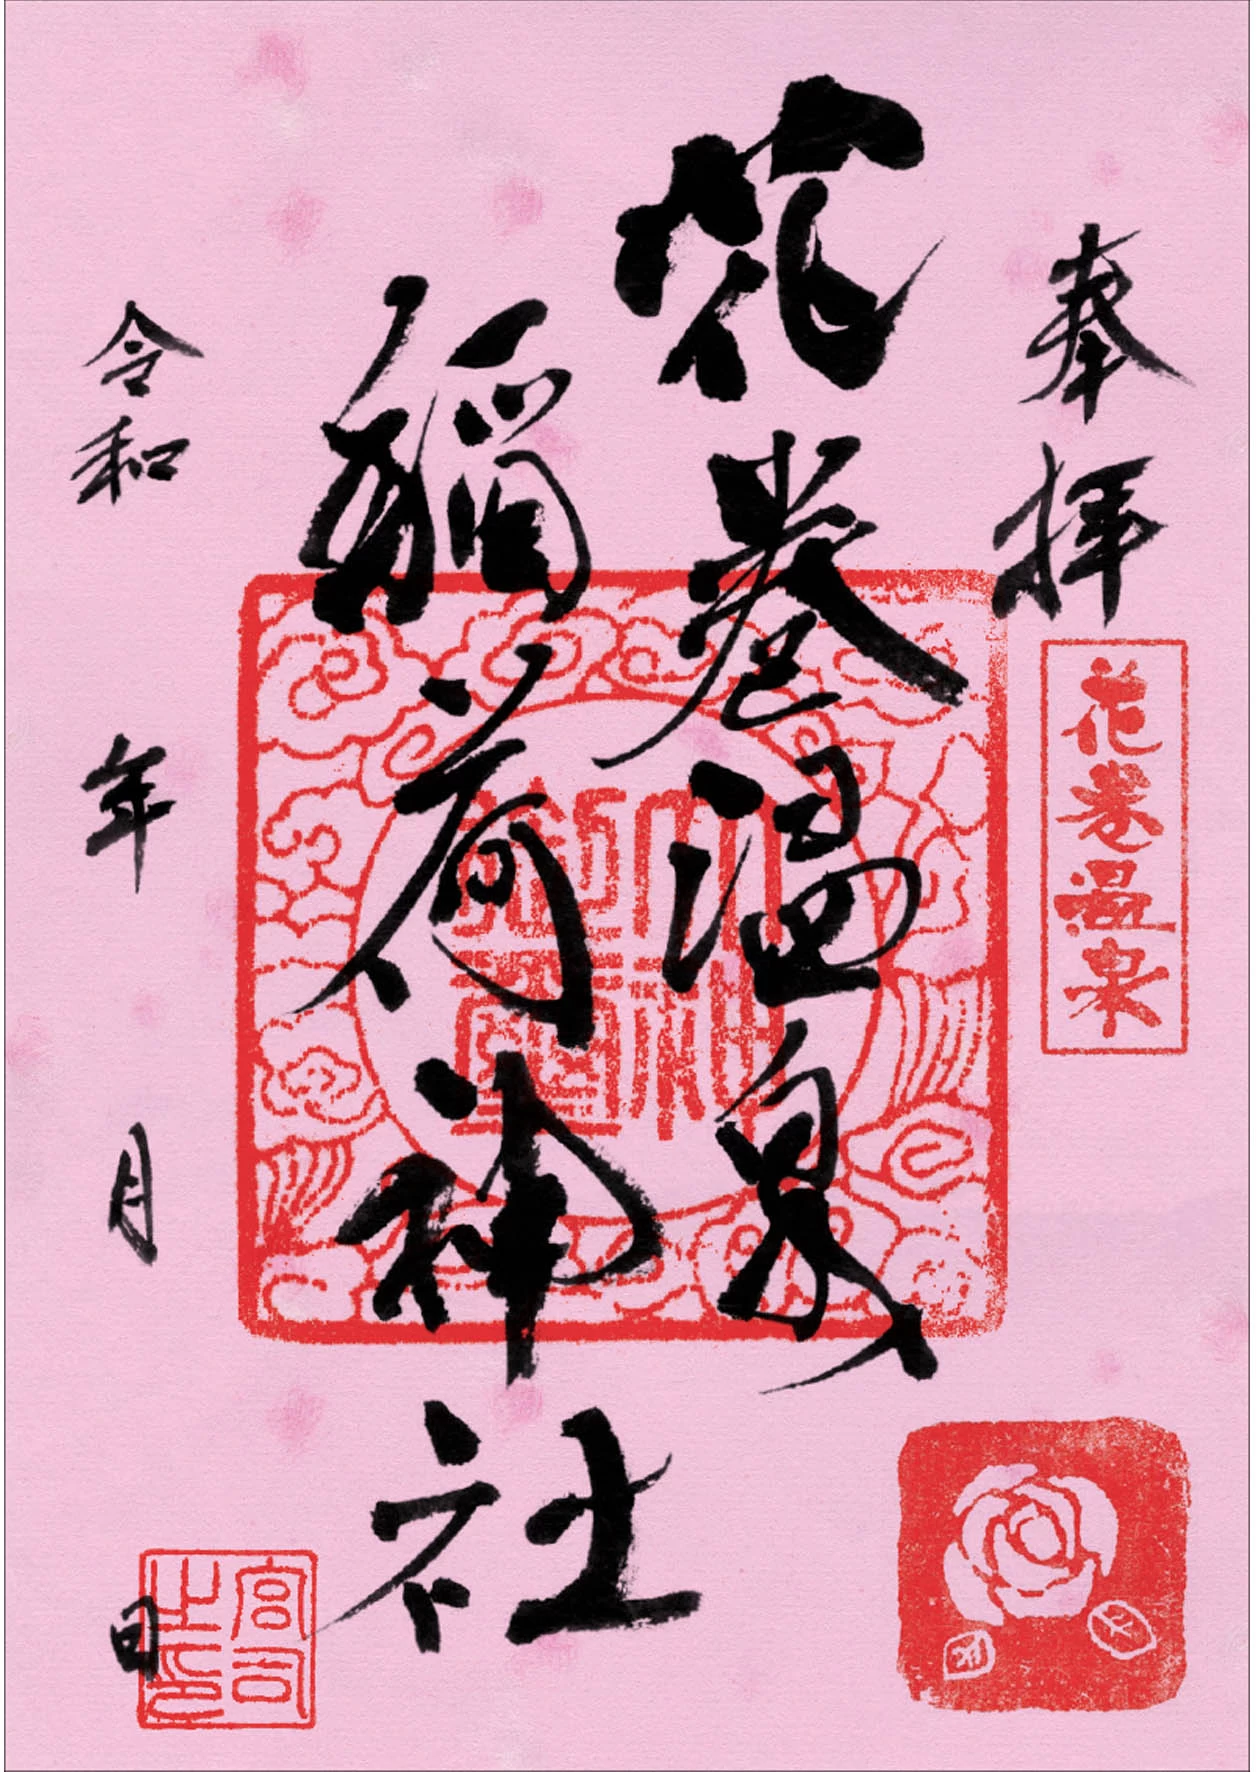 奉拝
花巻温泉
花巻温泉
稲荷神社
令和 年 月 日
宮司
之印